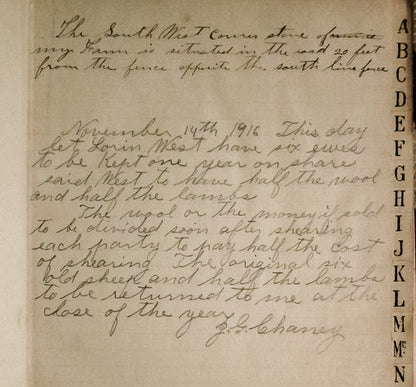 The South West corner stone of
my Farm is situated in the road 20 feet
from the fence opposite the south line fence
November 14th, 1916 This day
let Lorin West have six ewes
to be kept one year on share
said West to have half the wool
and half the lambs
The wool or the money if sold
to be divided soon after shearing
each party to pay half the cost
of shearing The original six
old sheep and half the lambs
to be returned to me at the
close of the year
J. G. Chaney
A
B
C
D
E
F
G
H
I
J
K
L
M
Mc
N